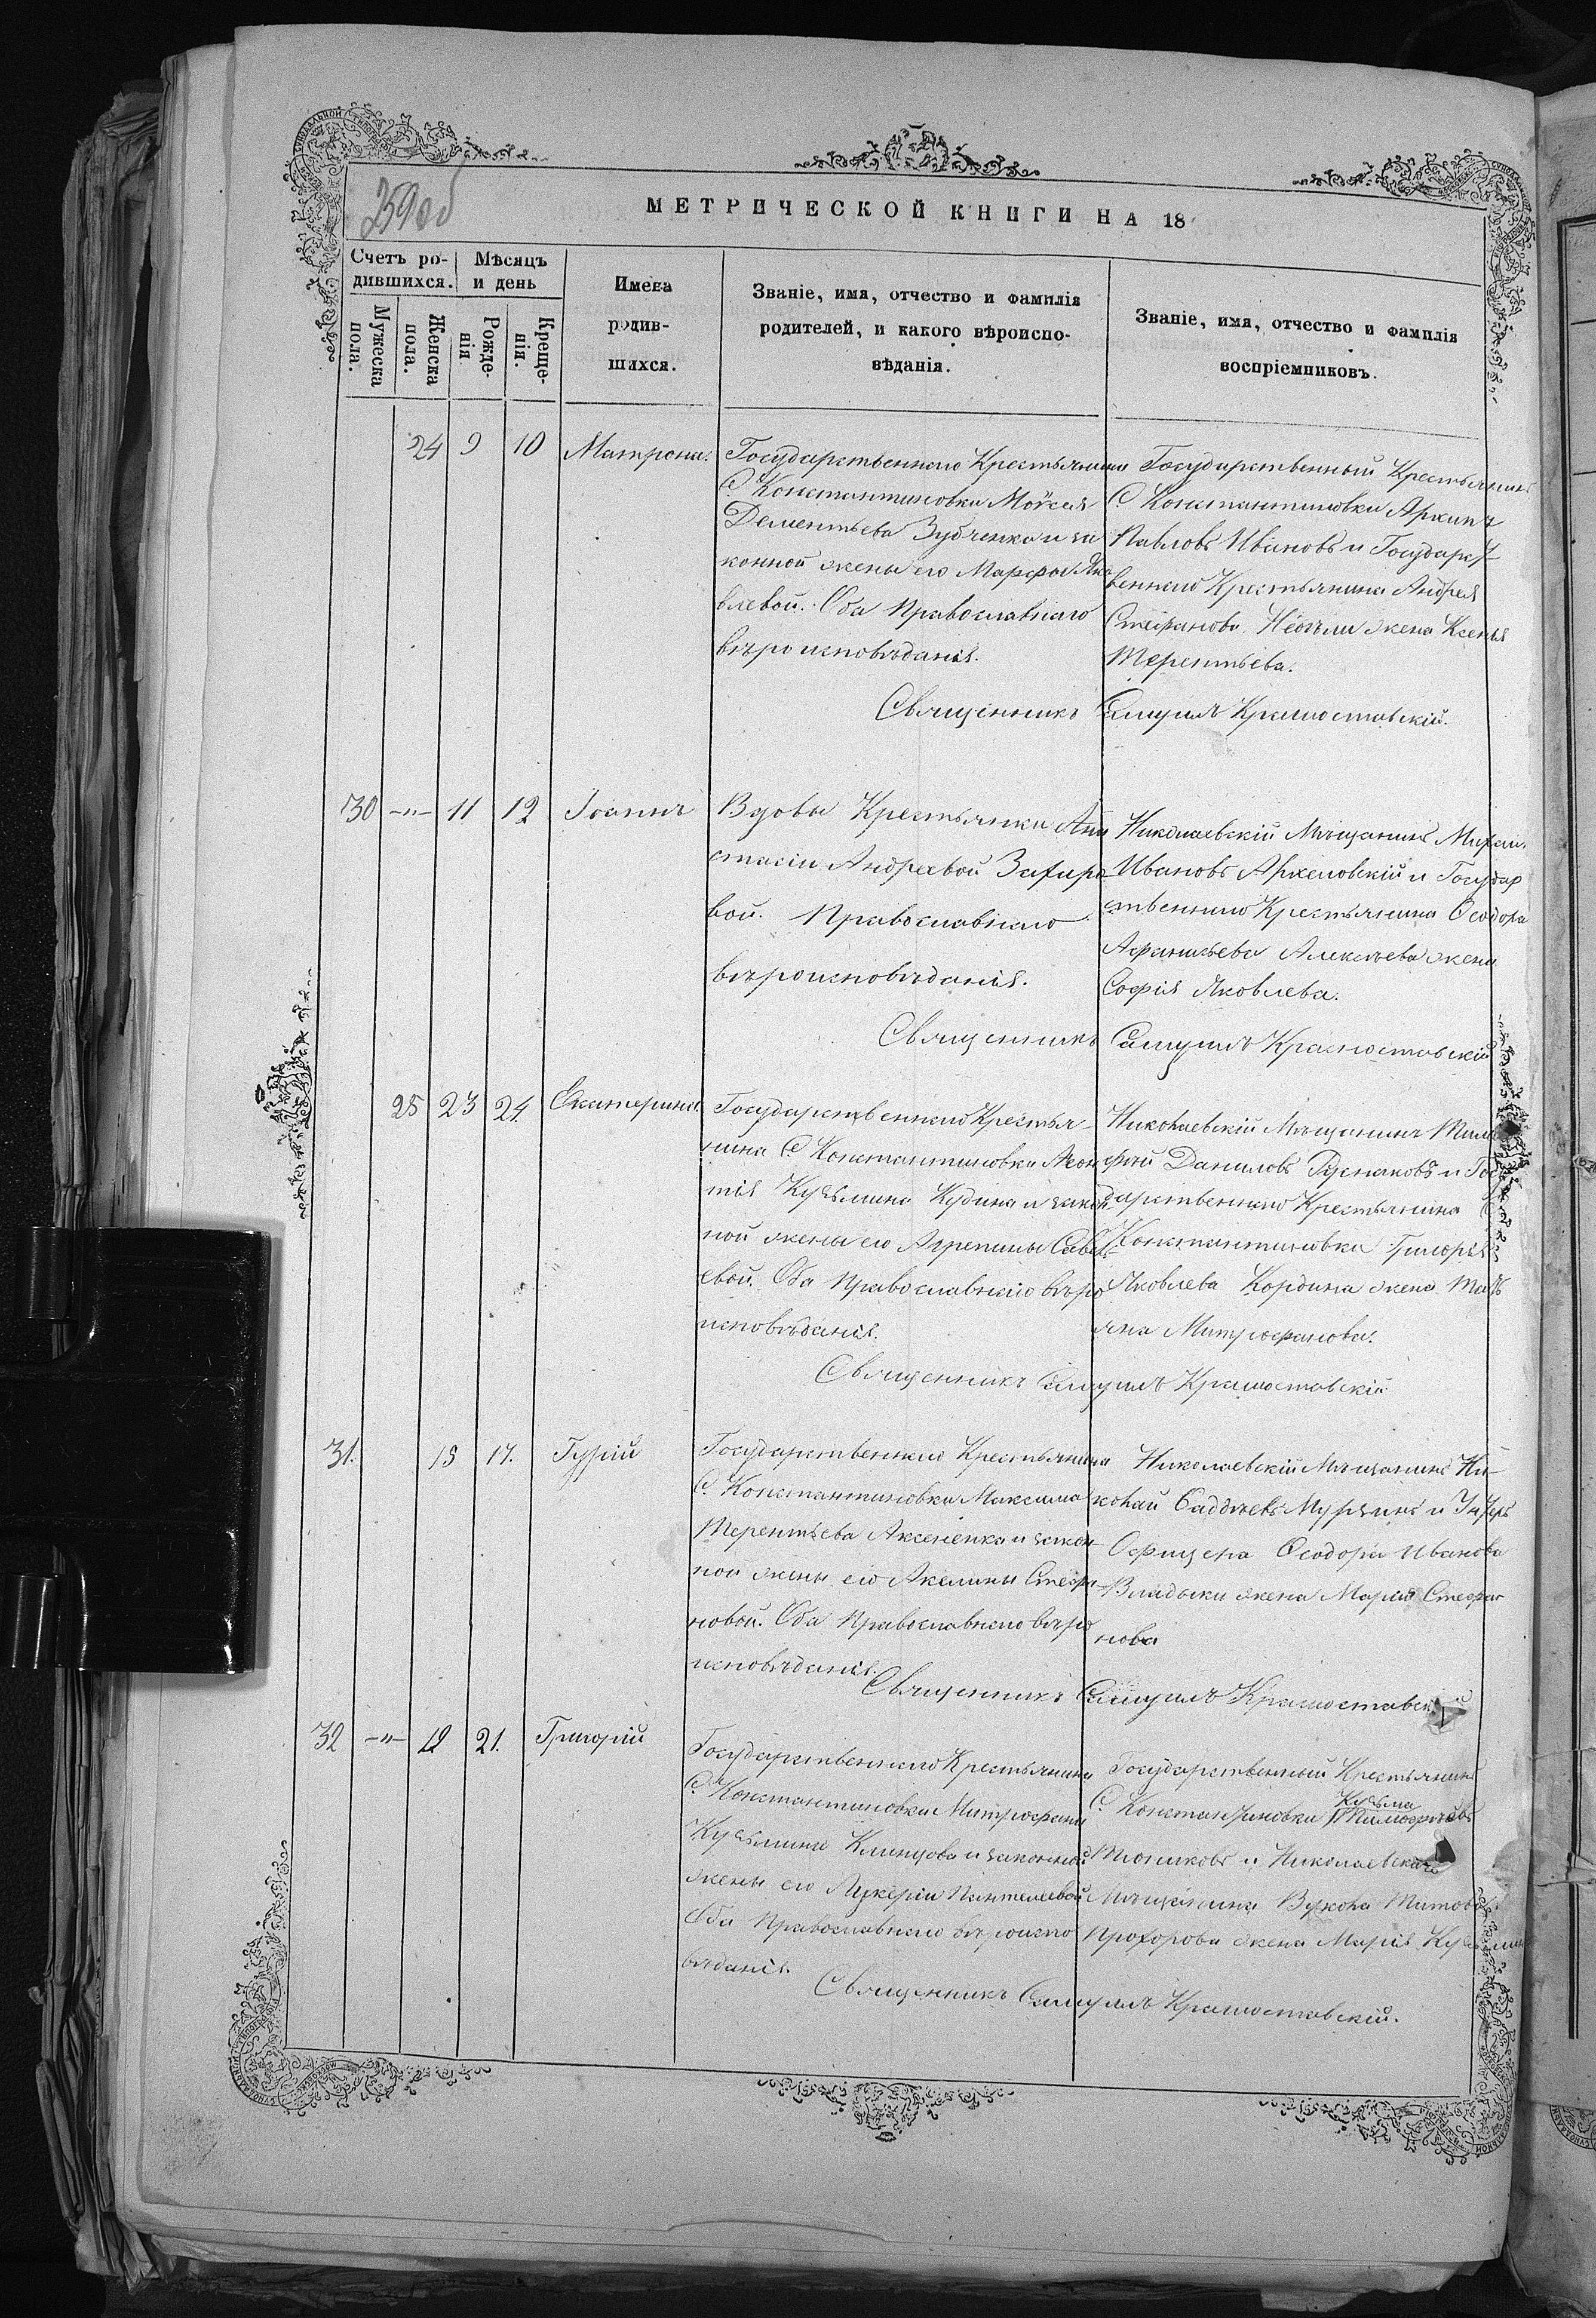 259об
МЕТРИЧЕСКОЙ КНИГИ НА 18
Счетъ ро-
дившихся.
Мѣсяцъ
и день
Мужеска
пола.
Женска
пола.
Рожде-
нія
Креще-
нія.
Имена
родив-
шихся.
Званіе, имя, отчество и фамилія
родителей, и какого вѣроиспо-
вѣданія.
Званіе, имя, отчество и фамилія
воспріемниковъ.
24 9 10 Матрона.
Государственнаго Крестьянина
С. Константиновки Моѵсея
Дементьева Зубченка и за
конной жены его Марфы Яко
влевой. Оба Православнаго
вѣроисповѣданія.
Государственный Крестьянинъ
С. Константиновки Архипъ
Павловъ Ивановъ и Государст
веннаго Крестьянина Андрея
Стефанова жена Ксенія
Терентьева.
Священникъ Самуилъ Красноставскій.
30 -"- 11 12 Іоаннъ
Вдовы Крестьянки Ана
стасіи Андреевой Захаро
вой. Православнаго
вѣроисповѣданія.
Николаевскій Мѣщанинъ Михаи.
Ивановъ и Государ
ственнаго Крестьянина Ѳеодора
Афанасьева Алексѣева жена
Софія Яковлева.
Священникъ Самуилъ Красноставскій
25 23 24. Екатерина.
Государственнаго Крестья-
нина С. Константиновки Леон
тія Кузьмина Кудина и закон
ной жены его Агрепины Савел
евой. Оба Православнаго вѣро
исповѣданія.
Николаевскій Мѣщанинъ Тимо
фей Даниловъ Руснаковъ и Госу
дарственнаго Крестьянина С.
Константиновки Григорія
Яковлева Кордина жена Тать
яна Митрофанова.
Священникъ Самуилъ Красноставскій
31. 15 17. Гурій
Государственнаго Крестьянина
С. Константиновки Максима
Терентьева Аксененка и закон
ной жены его Акелины Стефа
новой. Оба Православнаго вѣро
исповѣданія.
Николаевскій Мѣщанинъ Ни-
колай Мурзинъ и Унтеръ
Офицера Ѳеодора Иванова
Владыки жена Марія Стефа-
нова
Священникъ Самуилъ Красноставскій
32 -"- 19 21. Григорій
Государственнаго Крестьянина
С. Константиновки Митрофана
Кузьмина Клинцова и законной
жены его Лукеріи Пантелеевой
Оба Православнаго вѣроиспо
вѣданія.
Государственный Крестьянинъ
С. Константиновки Кузьма Тимофѣевъ
и Николаевскаго
Мѣщанина Вукола Титова
Прохорова жена Марія Кузьмина
Священникъ Самуилъ Красноставскій.